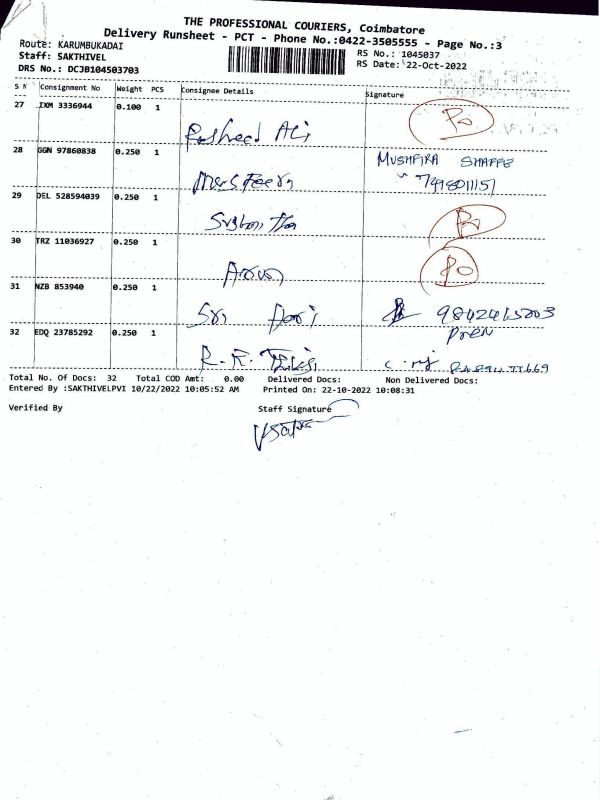 THE PROFESSIONAL COURIERS, Coimbatore
Delivery Runsheet - PCT - Phone No.:0422-3505555 - Page No.:3
Route: KARUMBUKADAI
RS No.: 1045037
Staff: SAKTHIVEL
RS Date: 22-Oct-2022
DRS No.: DCJB104503703
S N Consignment No Weight PCS Consignee Details Signature
27 IXM 3336944 0.100 1
Rasheed Ali
28 GGN 97860838 0.250 1
MUSHFIRA
29 DEL 528594039 0.250 1
30 TRZ 11036927 0.250 1
Arun
31 NZB 853940 0.250 1
Sri
32 EDQ 23785292 0.250 1
R. K.
Total No. Of Docs: 32 Total COD Amt: 0.00 Delivered Docs: Non Delivered Docs:
Entered By :SAKTHIVELPVI 10/22/2022 10:05:52 AM Printed On: 22-10-2022 10:08:31
Verified By Staff Signature